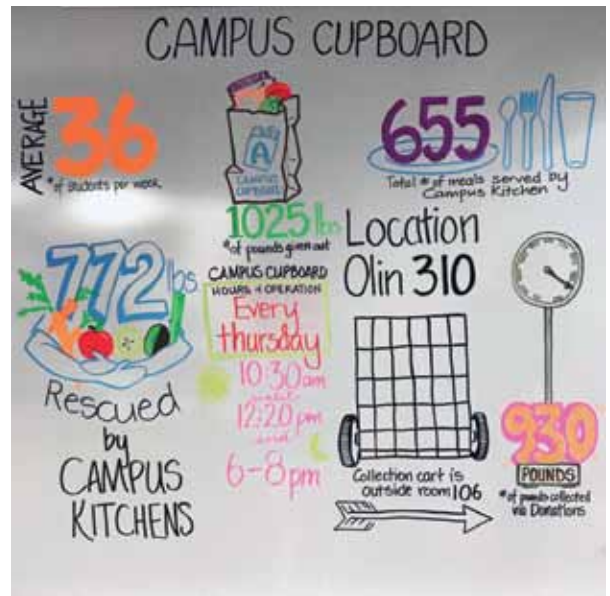 CAMPUS CUPBOARD
AVERAGE
36
# of students per week
A
CAMPUS
CUPBOARD
1025 lbs
# of pounds given out
655
Total # of meals served by
Campus Kitchen
772 lbs.
Rescued
by
CAMPUS
KITCHENS
CAMPUS CUPBOARD
HOURS of OPERATION
Every
thursday
10:30 am
12:20 pm
and
6-8pm
Location
Olin 310
Collection cart is
outside room 106
930
POUNDS
# of pounds collected
via Donations